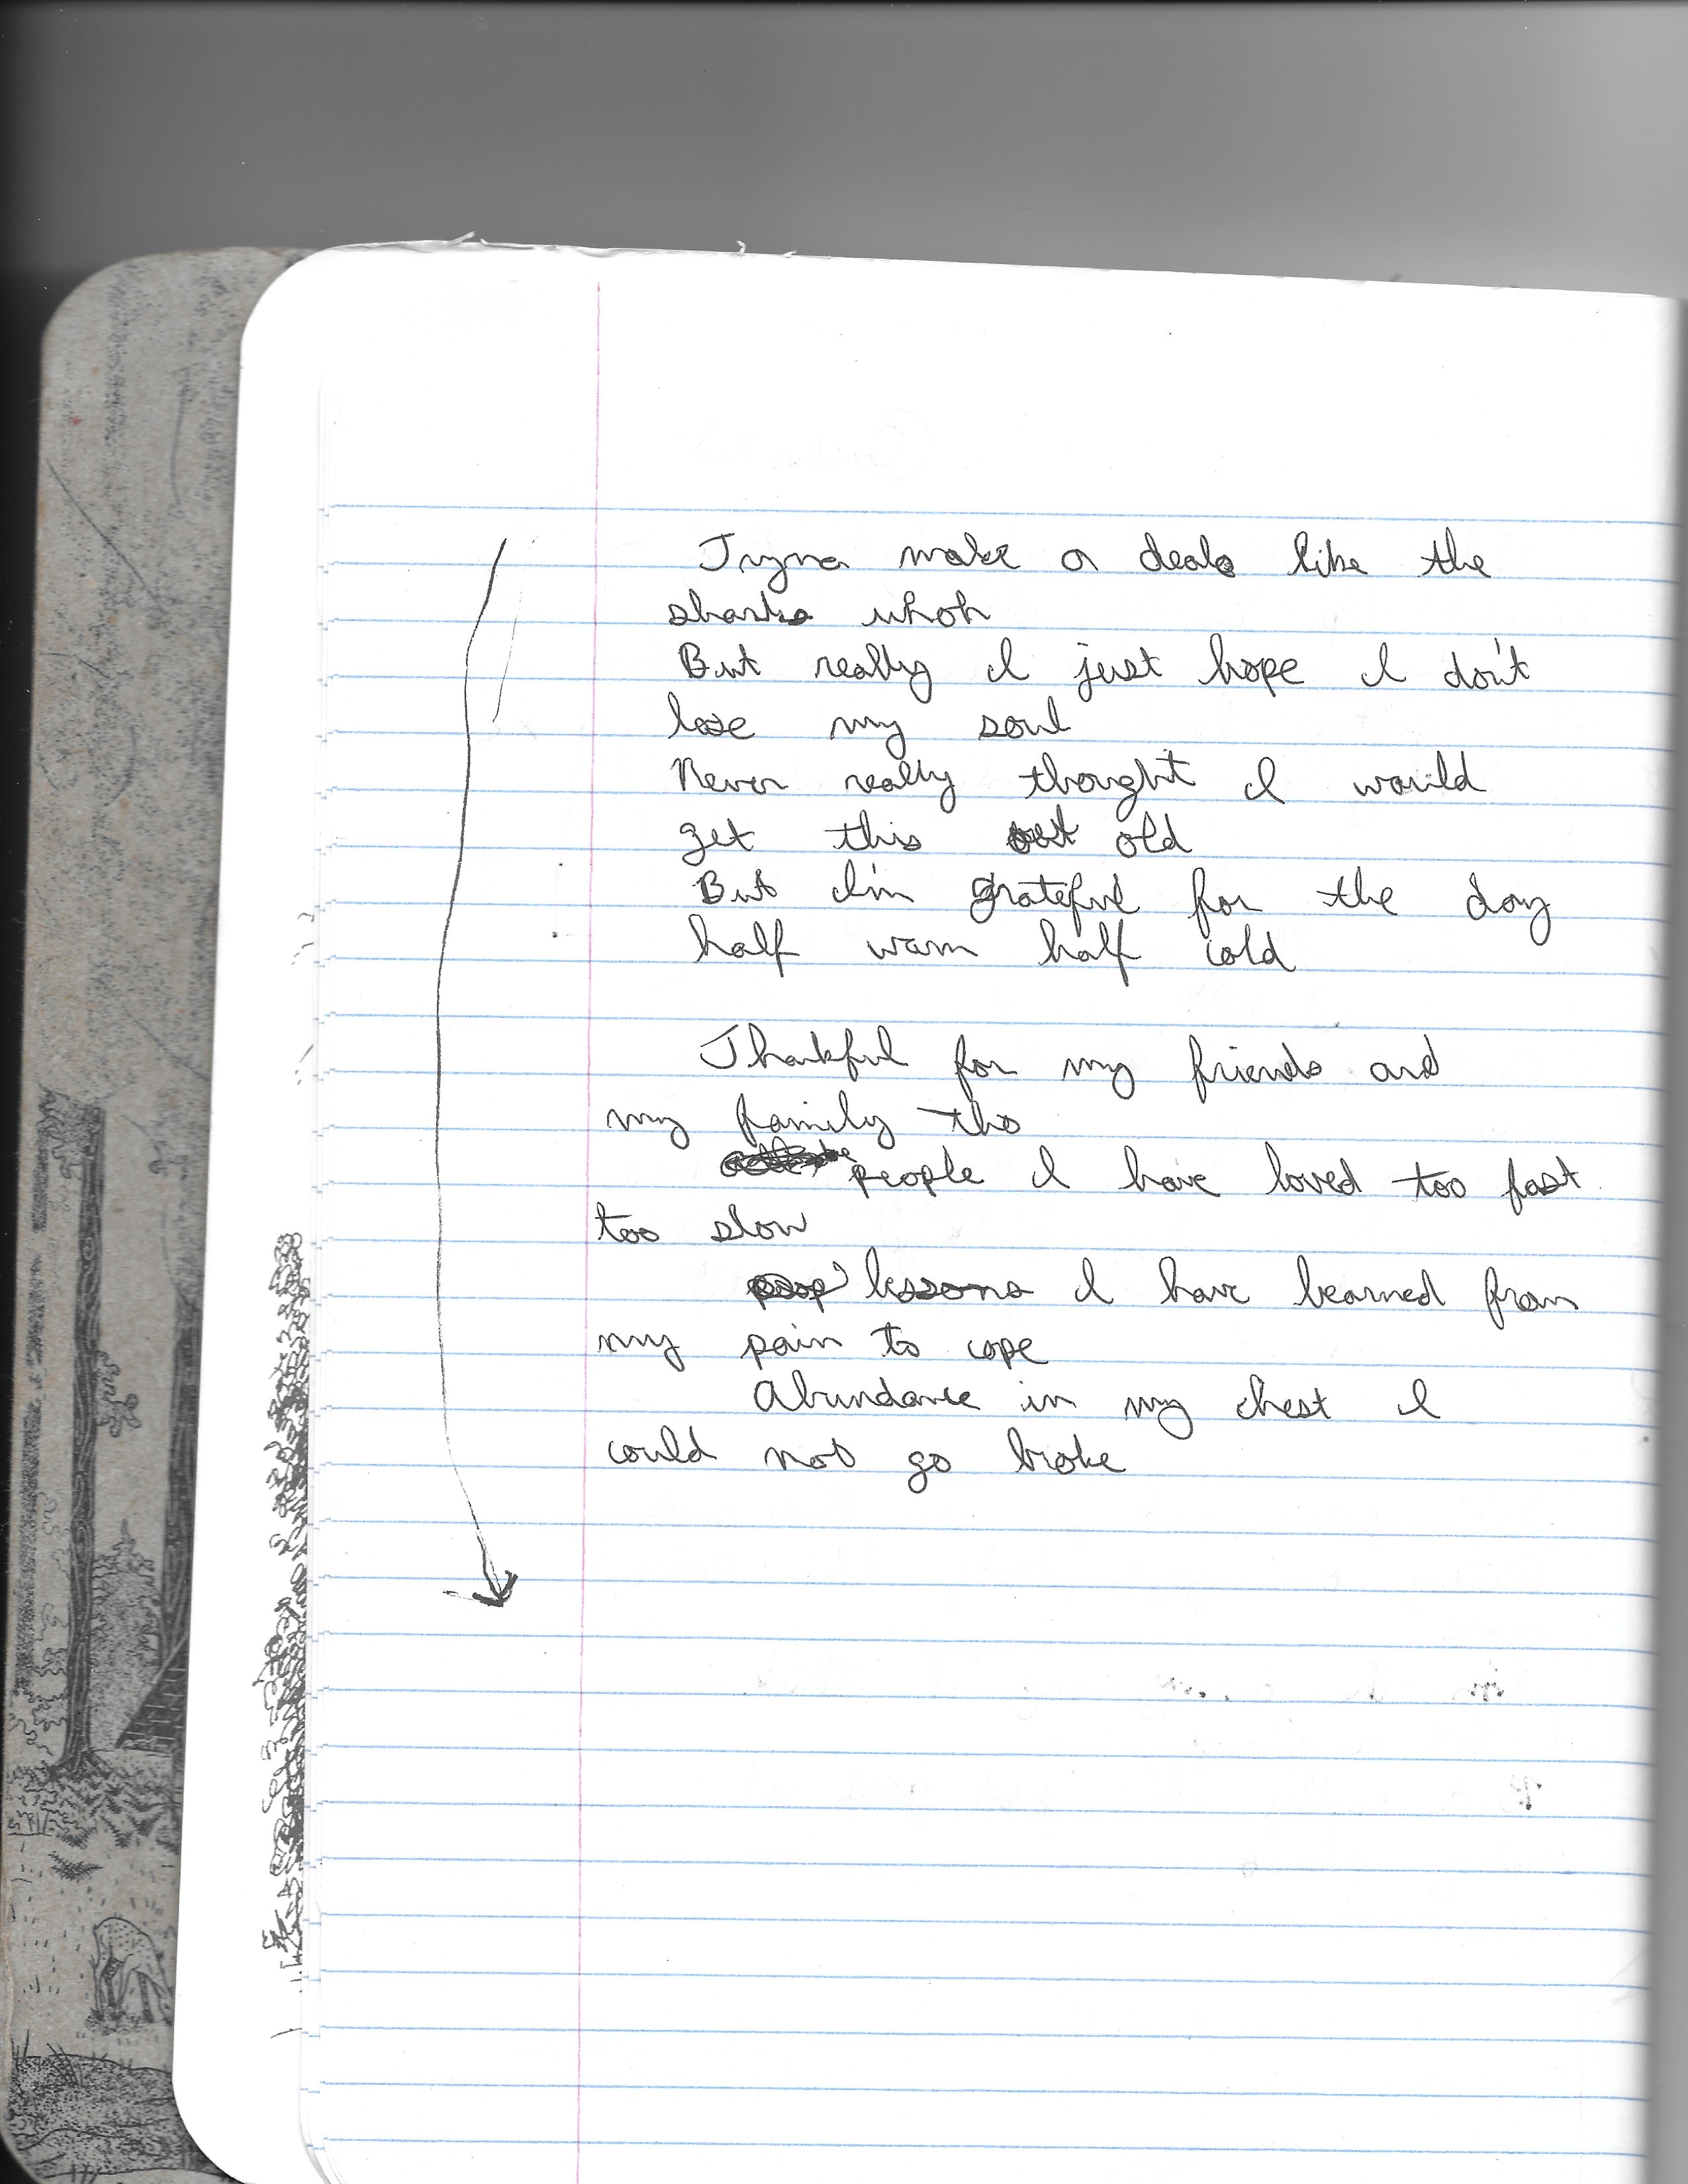 Tryna make a deal like the
sharks whoh
But really I just hope I don't
lose my soul
Never really thought I would
get this old
But I'm grateful for the day
half warm half cold
Thankful for my friends and
my family tho
people I have loved too fast
too slow
lessons I have learned from
my pain to cope
Abundance in my chest I
could not go broke